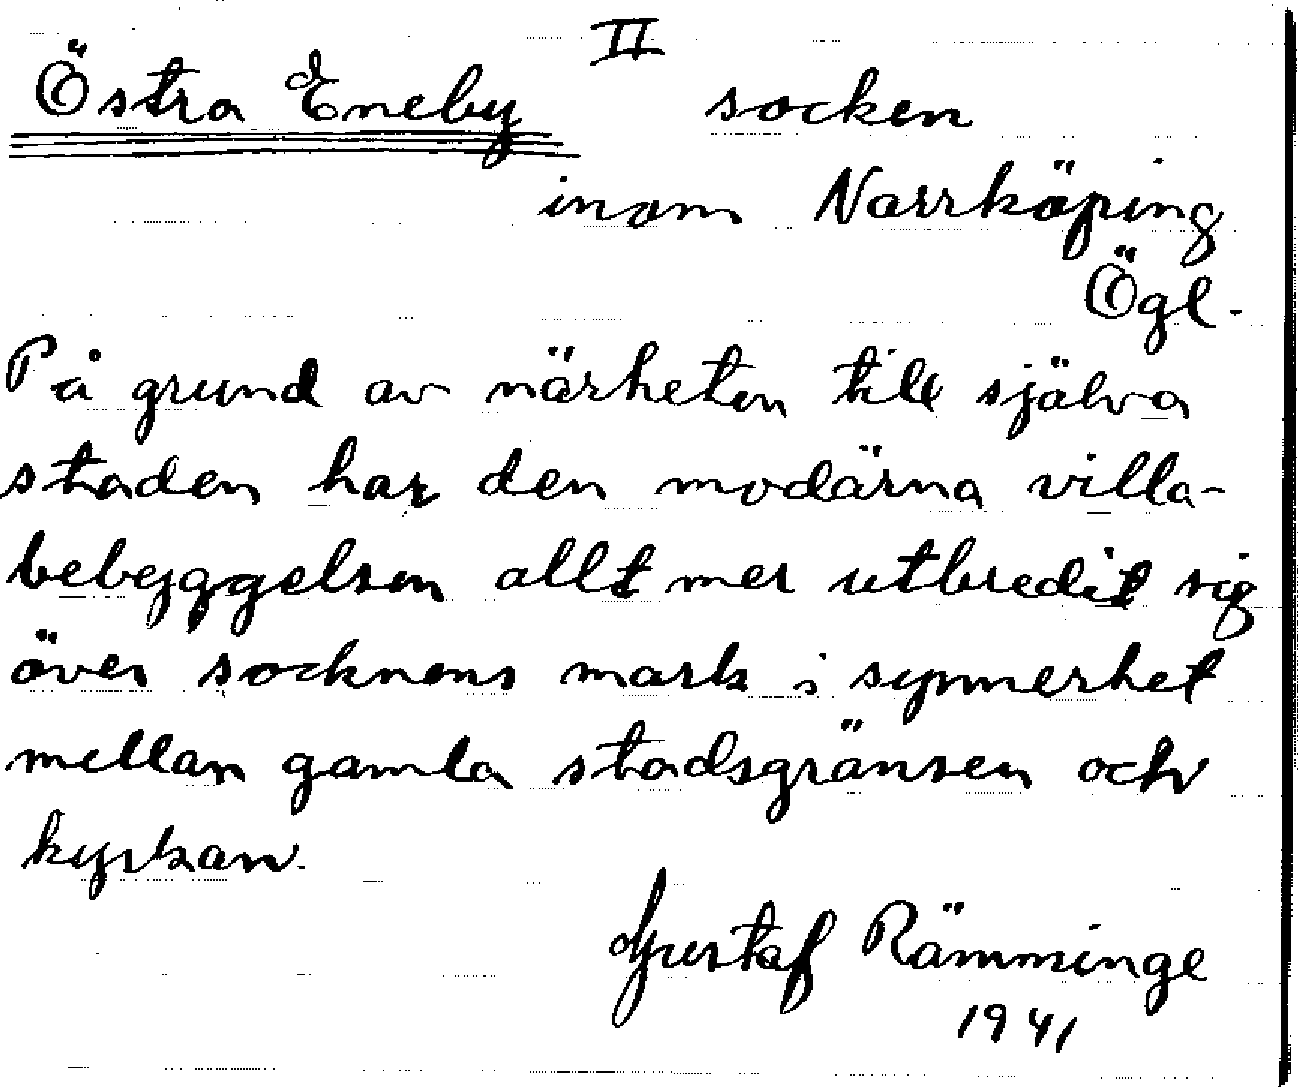 II
Östra Eneby socken
inom Norrköping
Ögl.
På grund av närheten till själva
staden har den modärna villa-
bebyggelsen allt mer utbredit sig
över socknens mark i synnerhet
mellan gamla stadsgränsen och
kyrkan.
Gustaf Rämminge
1941